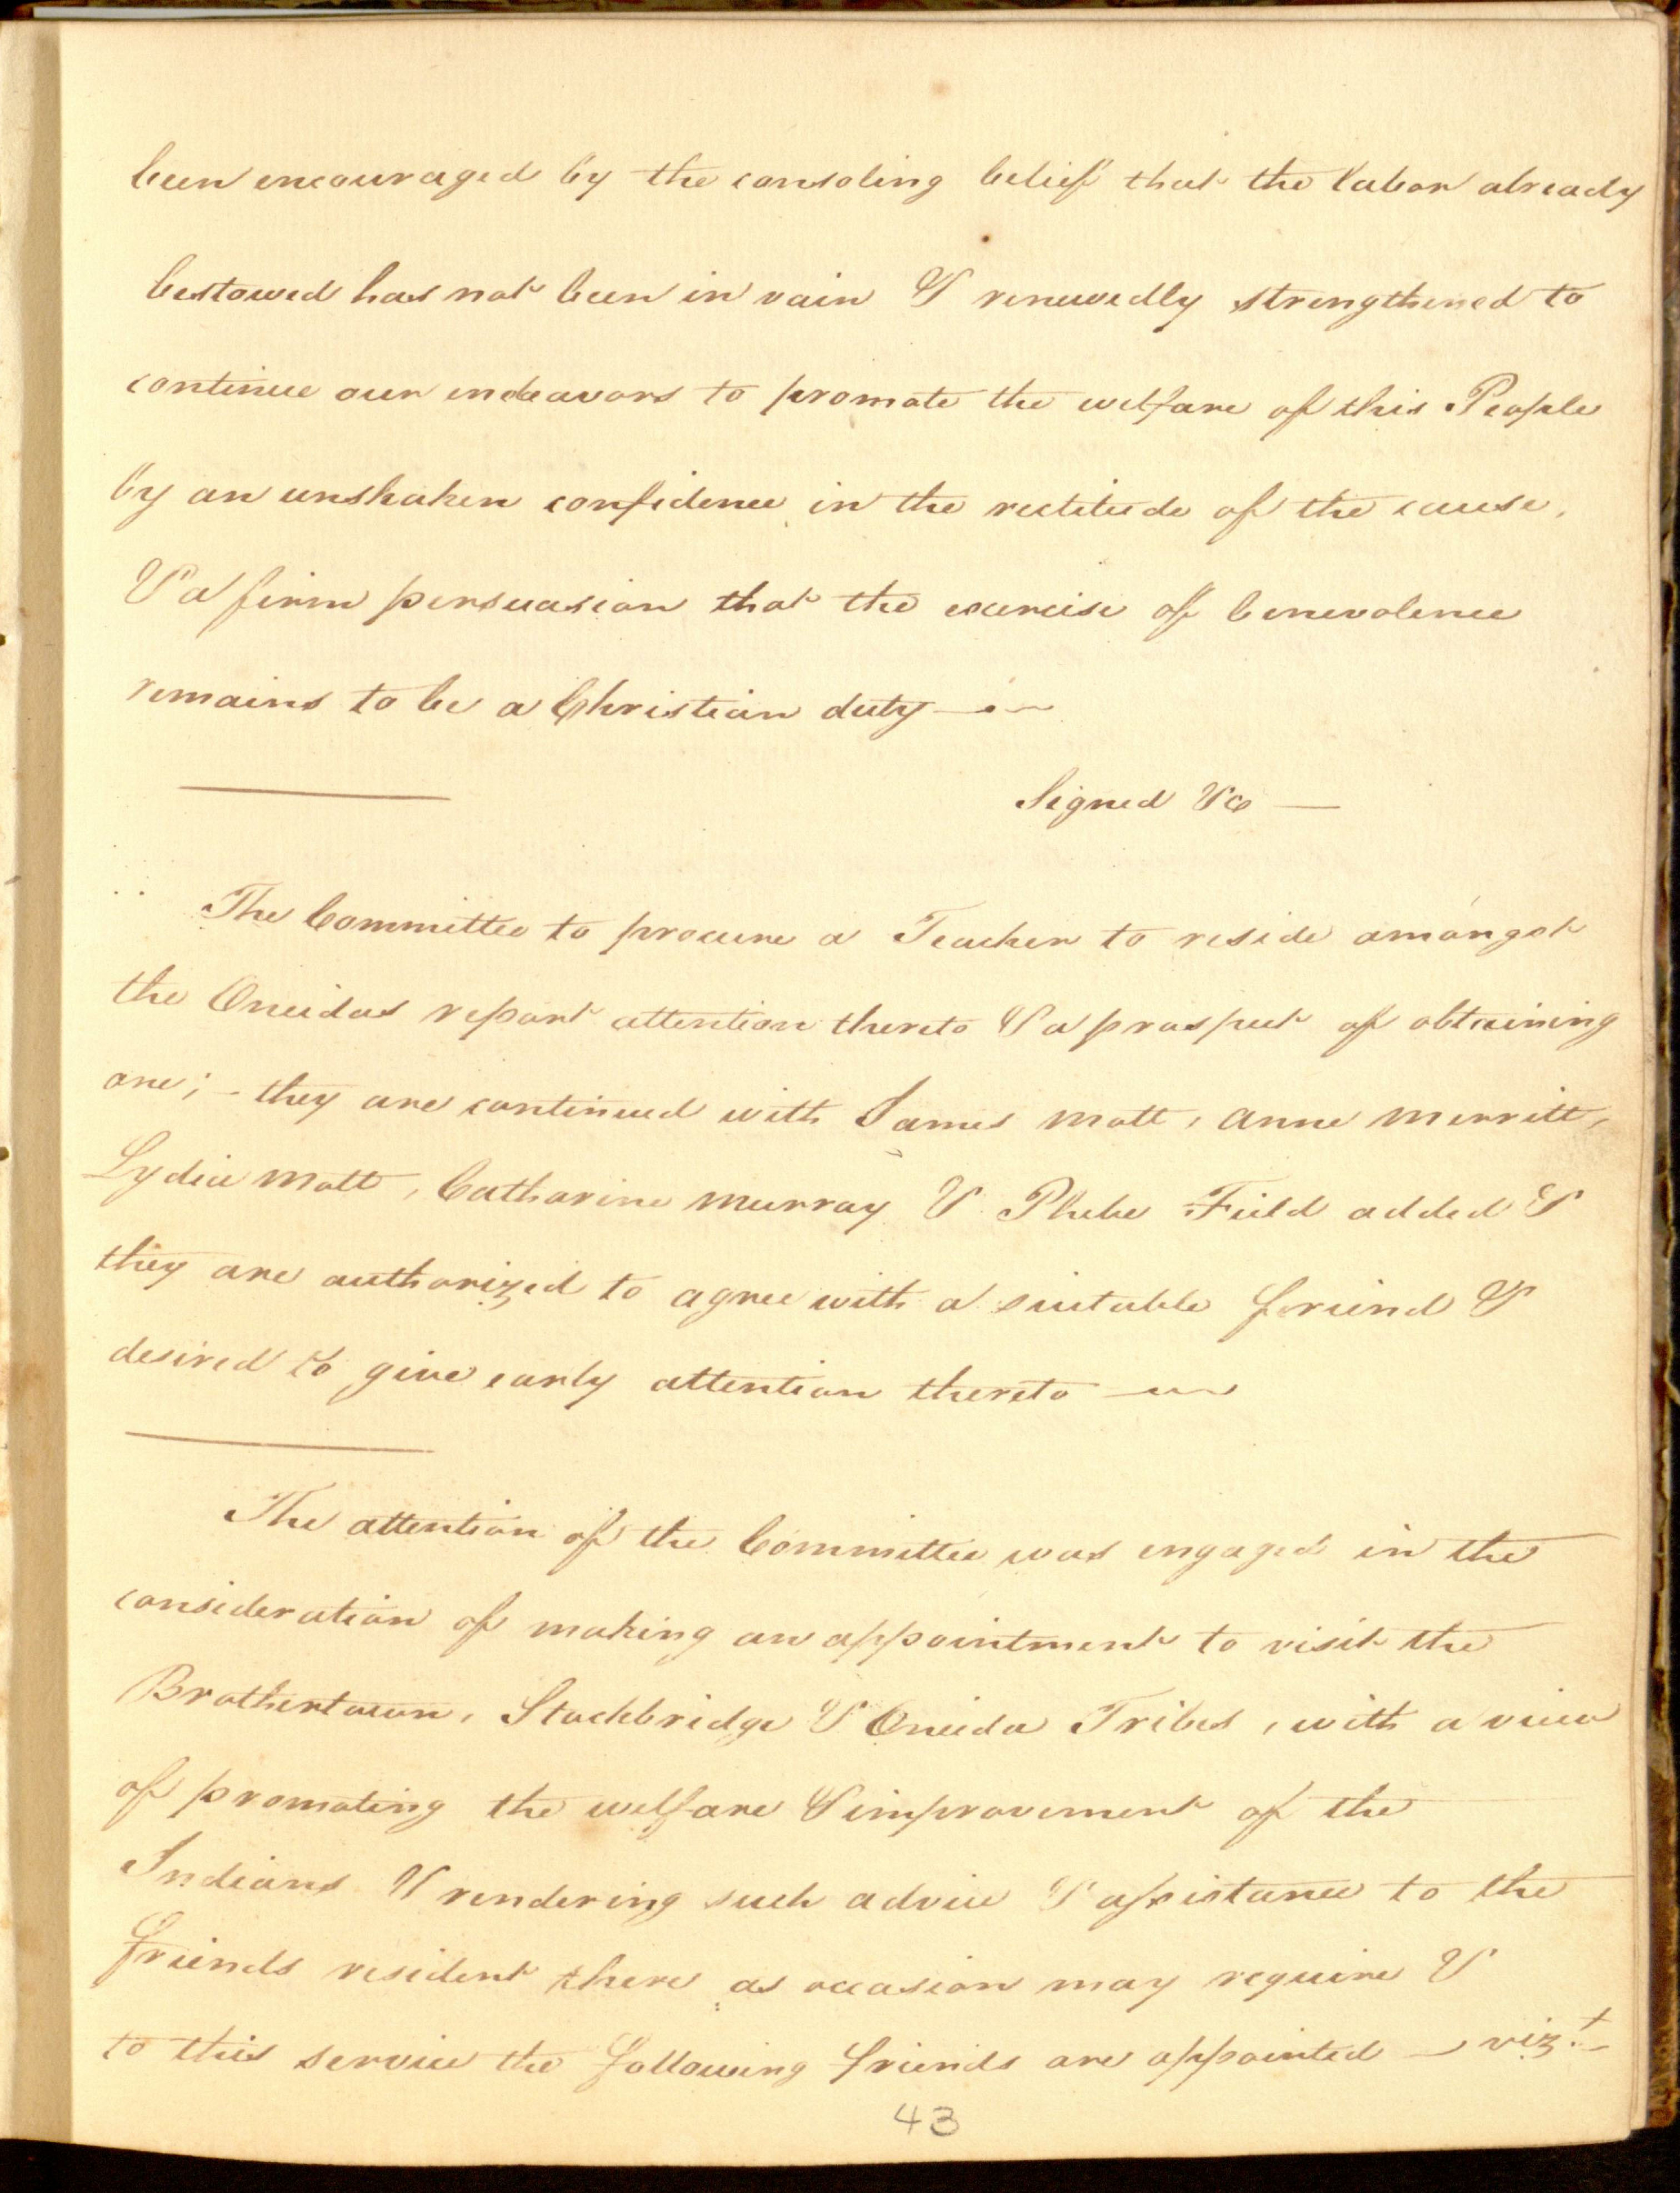 been encouraged by the consoling belief that the labor already
bestowed has not been in vain & renewedly strengthened to
continue our endeavors to promote the welfare of this People
by an unshaken confidence in the rectitude of the cause,
& a firm persuasion that the exercise of benevolence
remains to be a Christian duty —
Signed &c —
The Committee to procure a Teacher to reside amongst
the Oneidas report attention thereto & a prospect of obtaining
one; - they are continued with James Mott, Anne Merritt,
Lydia Mott, Catharine Murray & Phebe Field added &
they are authorized to agree with a suitable friend &
desired to give early attention thereto —
The attention of the Committee was engaged in the
consideration of making an appointment to visit the
Brothertown, Stockbridge & Oneida Tribes, with a view
of promoting the welfare & improvement of the
Indians & rendering such advice & assistance to the
friends resident there as occasion may require &
to this service the following friends are appointed — vizt.
43